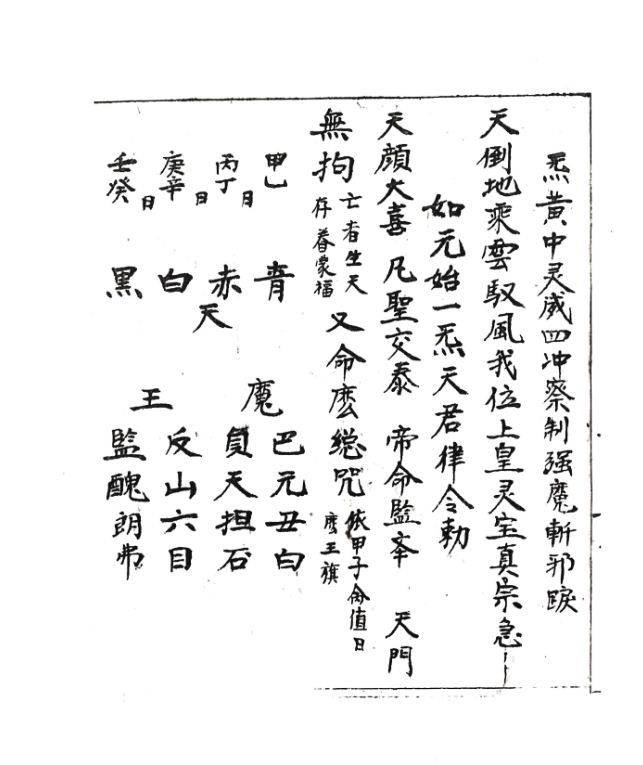 炁黃中灵威四冲察制强魔斬邪踧
天倒地乘雲馭風我位上皇灵宝真宗急〻
如元始一炁天君律令勅
天顔大喜 凡聖交泰 帝命監奉 天門
無拘 亡者生天 存者蒙福 又命麽總咒 依甲子命值日 麽王旗
甲乙日 青 魔 巴元丑白
丙丁日 赤天 負天担石
庚辛日 白 反山六目
壬癸日 黑 王 監醜朗弗